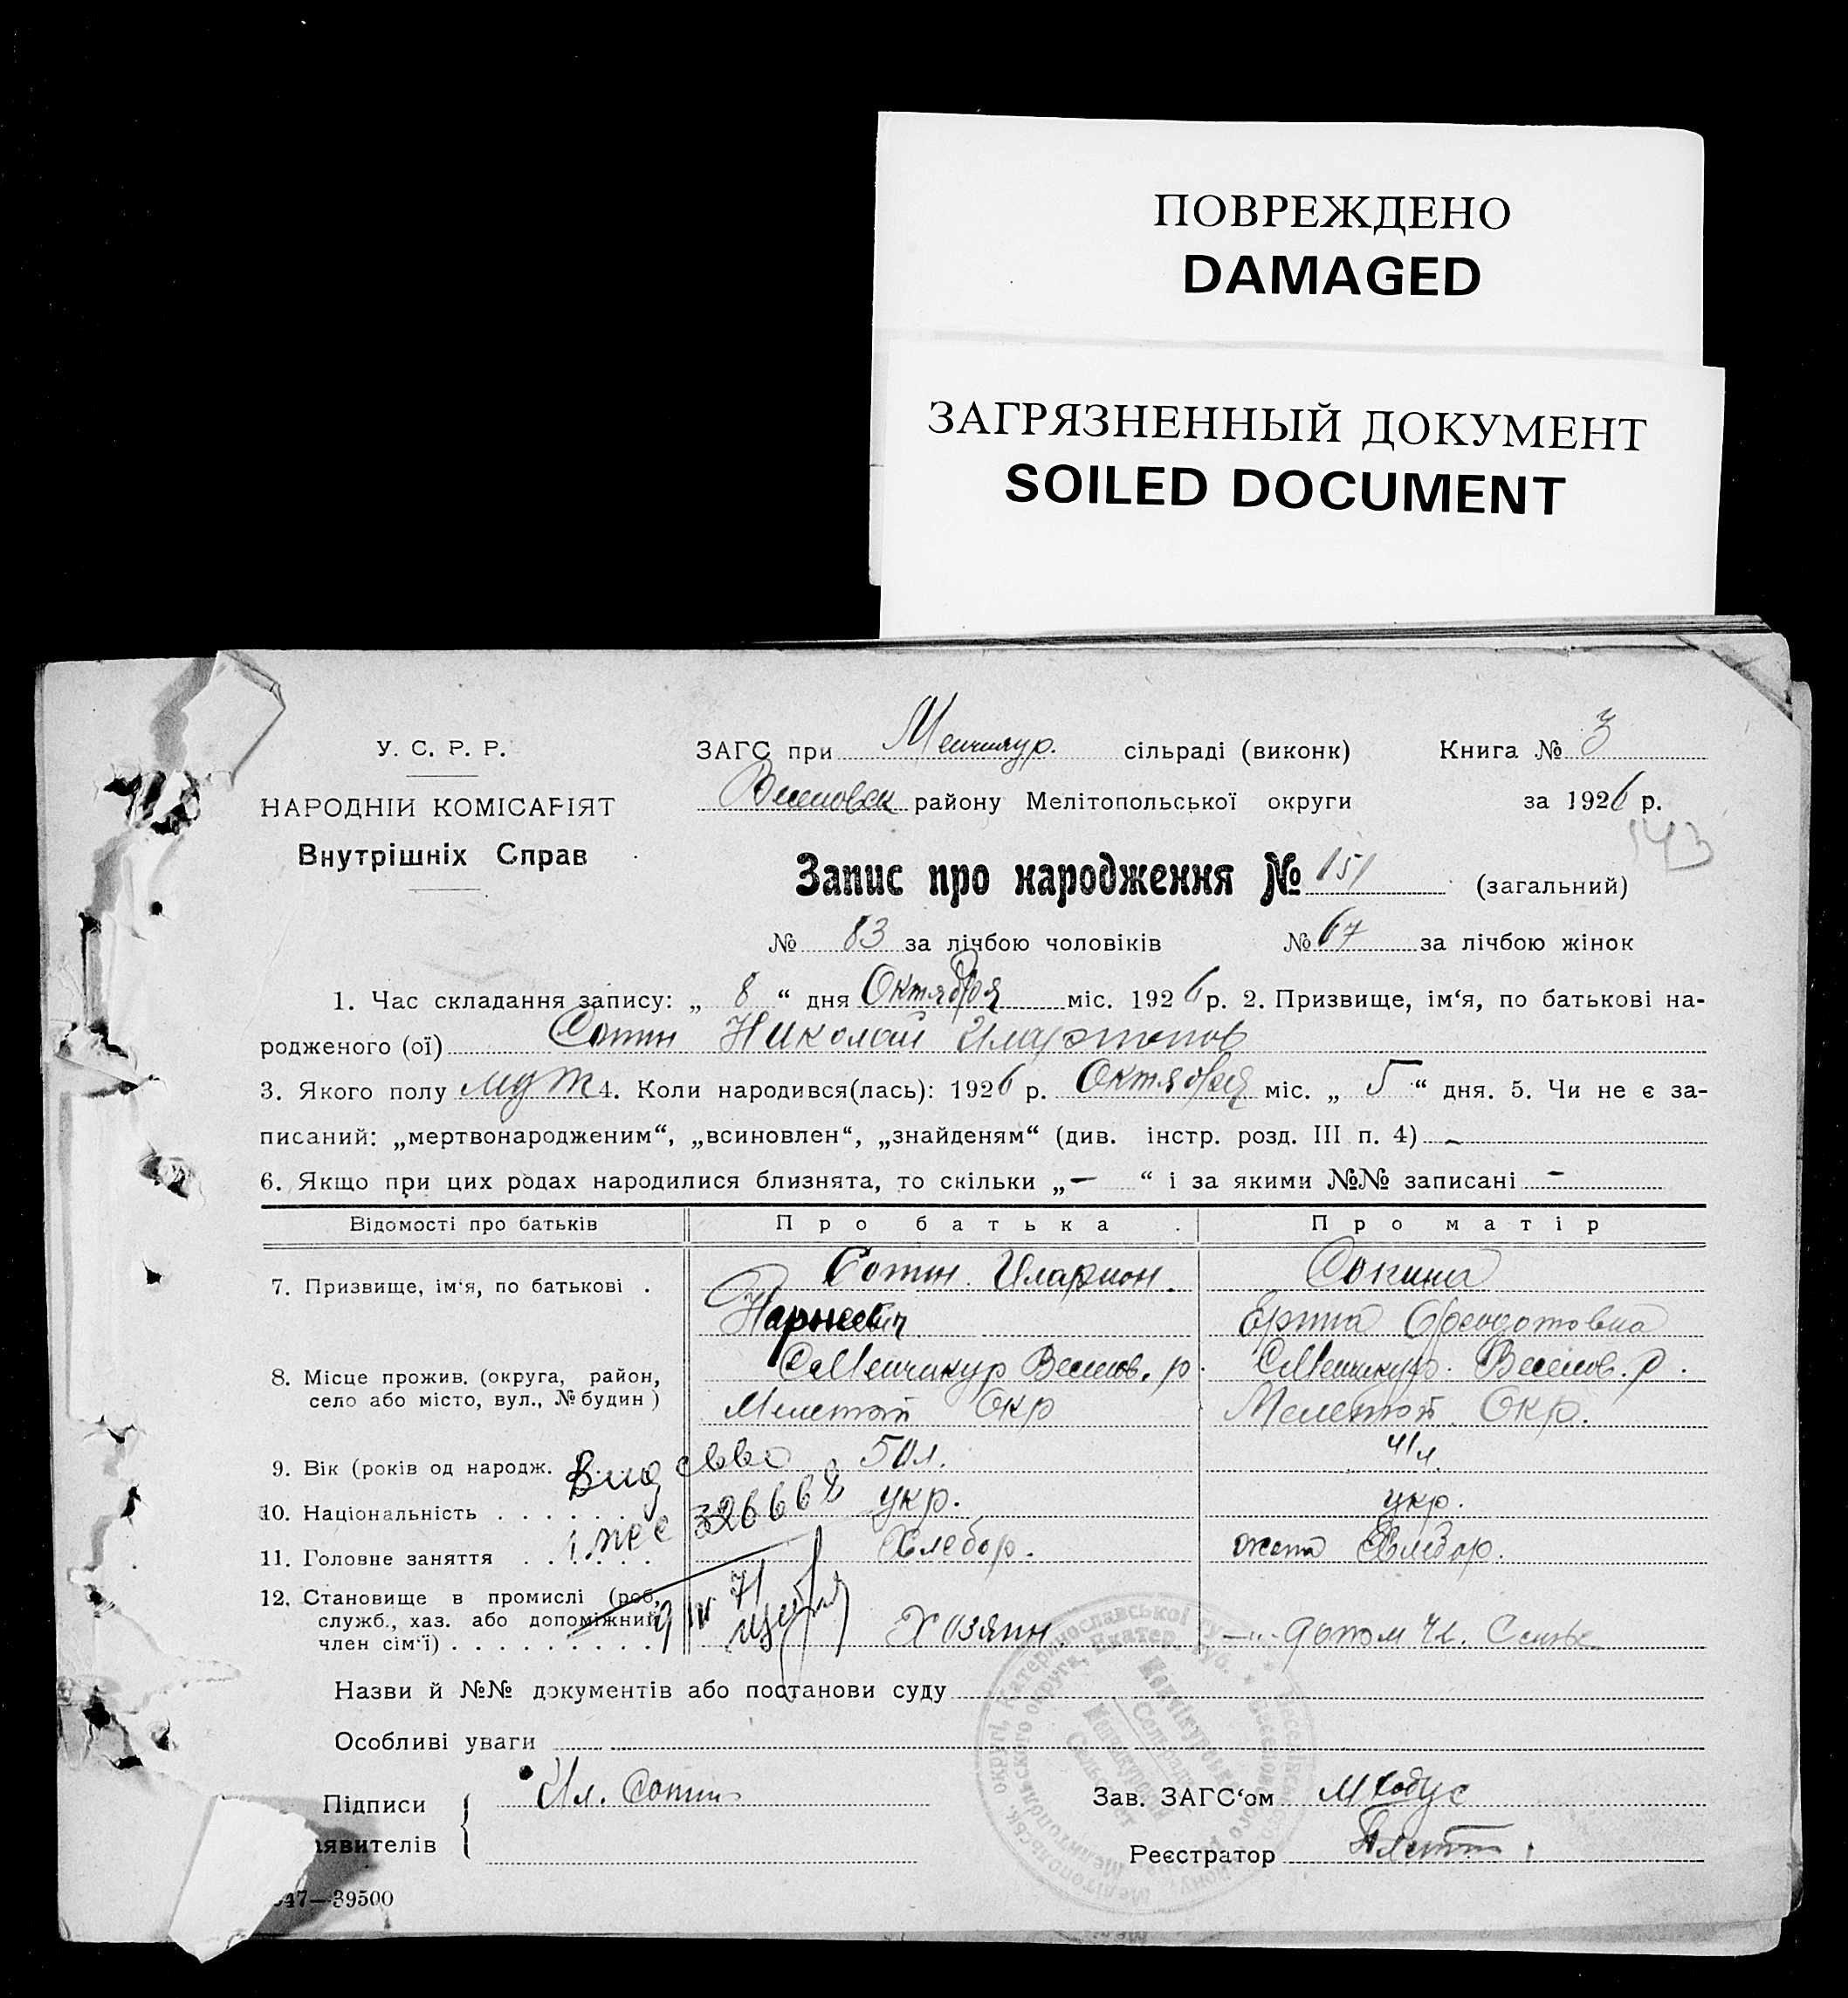 ПОВРЕЖДЕНО
DAMAGED
ЗАГРЯЗНЕННЫЙ ДОКУМЕНТ
SOILED DOCUMENT
У. С. Р. Р.
НАРОДНІЙ КОМІСАРІЯТ
Внутрішніх Справ
ЗАГС при Менчикур. сільраді (виконк) Книга № 3
району Мелітопольської округи за 1926 р.
143
Запис про народження № 151 (загальний)
№ 83 за лічбою чоловіків № 67 за лічбою жінок
1. Час складання запису: „ 8 “ дня Октября міс. 1926 р. 2. Призвище, ім‘я, по батькові на-
родженого (ої) Сотн Николай
3. Якого полу муж 4. Коли народився(лась): 1926 р. Октября міс. „ 5 “ дня. 5. Чи не є за-
писаний: „мертвонародженим“, „всиновлен“, „знайденям“ (див. інстр. розд. III п. 4) –
6. Якщо при цих родах народилися близнята, то скільки „ – “ і за якими №№ записані –
Відомості про батьків Про батька Про матір
7. Призвище, ім‘я, по батькові . Сотн. Иларион.
8. Місце прожив. (округа, район, село або місто, вул., № будин ) С. Менчикур Веселов. р. С. Менчикур. Веселов. р.
Окр Окр.
9. Вік (років од народж. 50 л. 41 л.
10. Національність . . . . . . укр. укр.
326668
11. Головне заняття . . . . . . Хлебор. жена Хлебор.
12. Становище в промислі (роб,
служб., хаз. або допоміжний
член сім‘ї) . . . . . . . . . Хозяин. допом чл.
9 IV 71
Назви й №№ документів або постанови суду
Особливі уваги
Підписи Ил. Сотн
явителів
Зав. ЗАГС‘ом
Реєстратор
47—39500